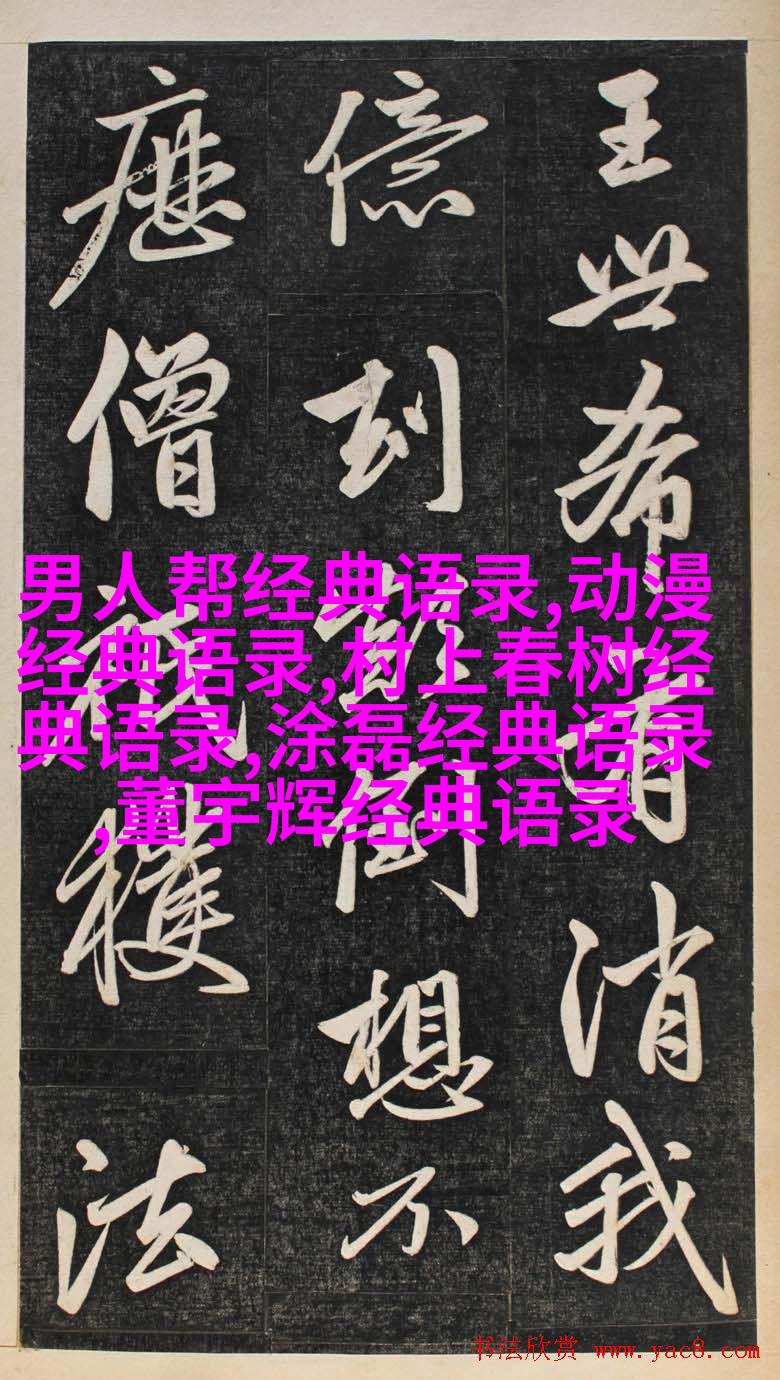 王世希有消我
億劫顛倒想不
歷僧祇獲法
男人帮经典语录,动漫
经典语录,村上春树经
典语录,涂磊经典语录
,董宇辉经典语录
书法欣赏 www.yac8.com